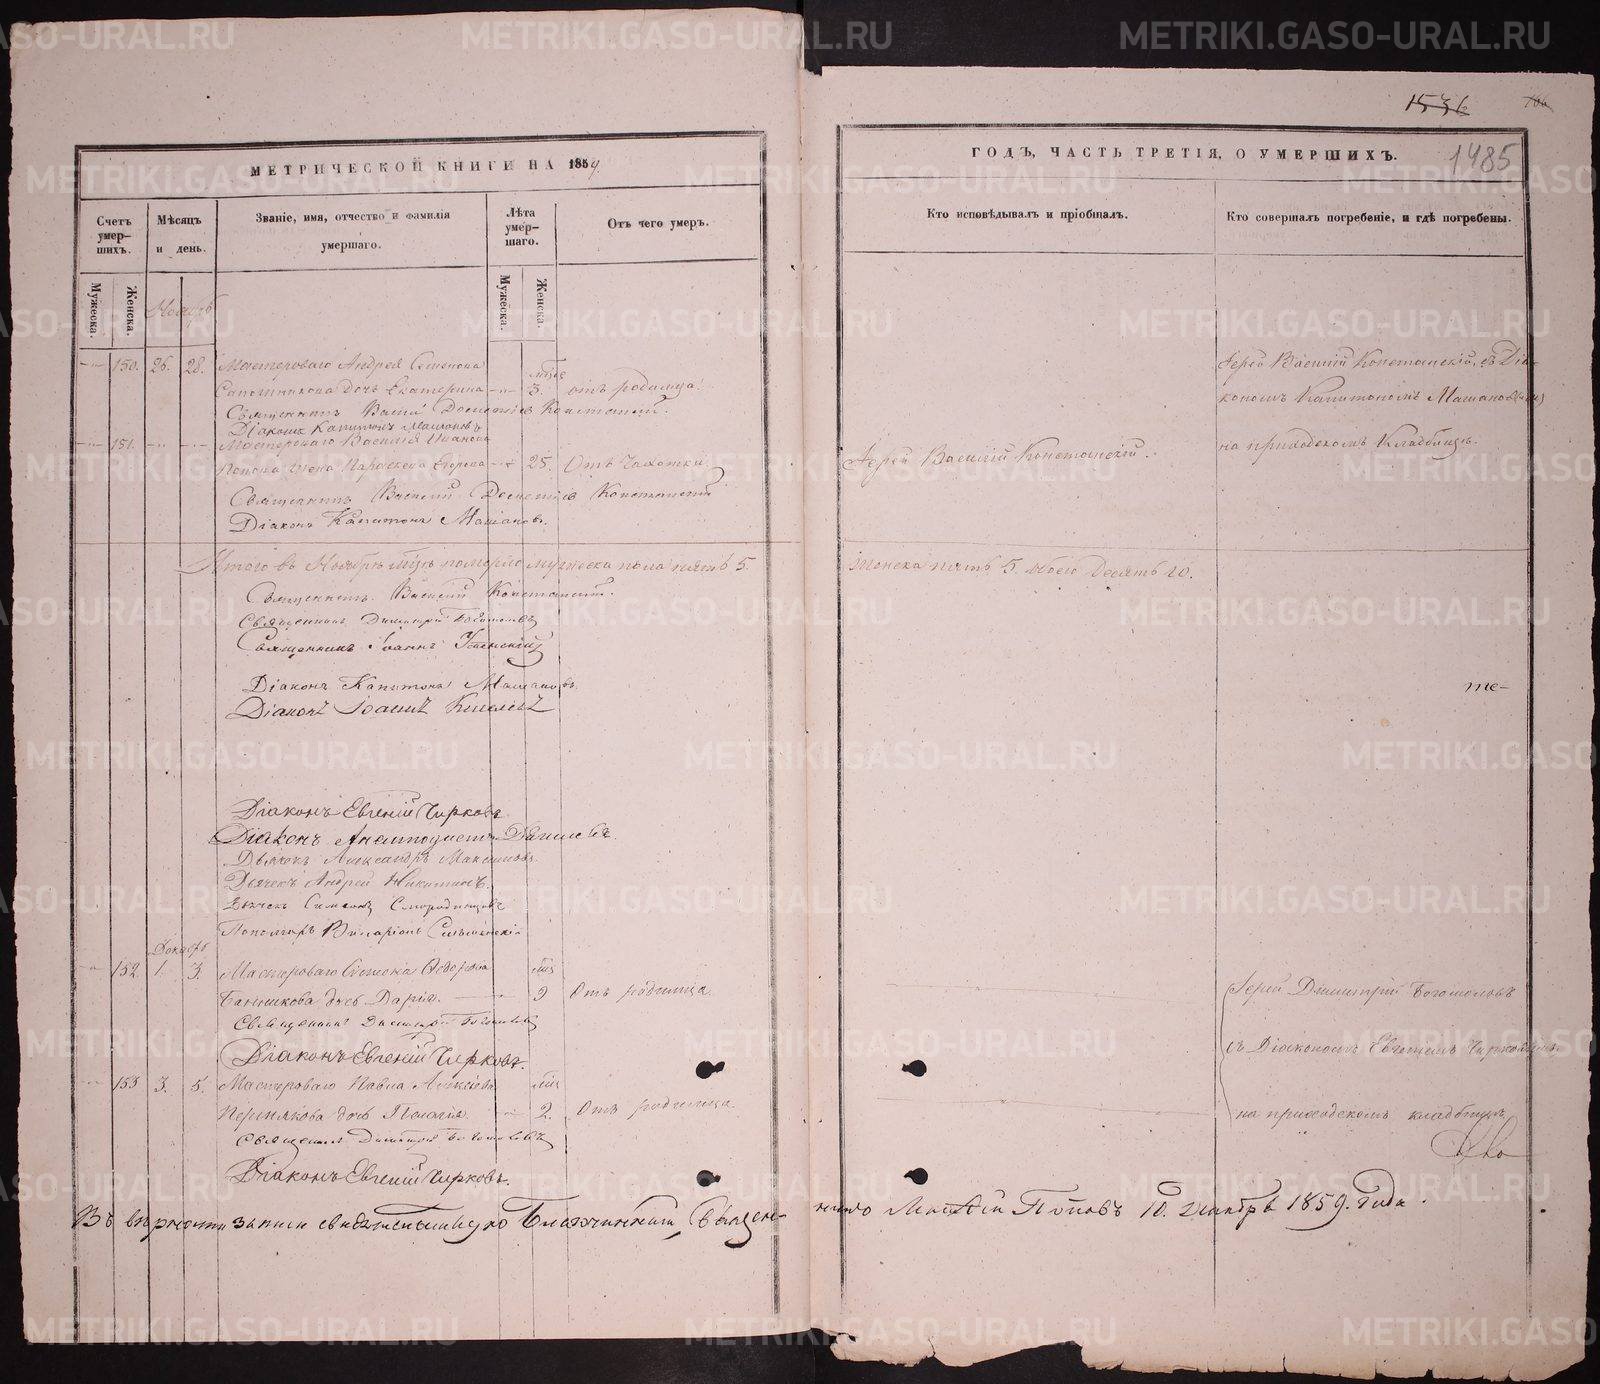 METRIKI.GASO-URAL.RU
МЕТРИЧЕСКОЙ КНИГИ НА 1859
Счетъ умер-шихъ.
Мужеска. Женска.
Мѣсяцъ и день.
Званіе, имя, отчество и фамилія умершаго.
Лѣта умер-шаго.
Мужеска. Женска.
Отъ чего умеръ.
Ноябрь
150. 26. 28. Мастероваго Андрея Семенова
Сапожникова дочь Екатерина 3. отъ родимца
Діаконъ Капитонъ Машановъ
151. Мастероваго Василія Иванова
Попова жена Параскева Егорова 25. Отъ Чахотки
Священникъ Василій Константій
Діаконъ Капитонъ Машановъ.
Итого въ Ноябрѣ мцѣ померло мужеска пола пять 5.
Священникъ Василій
Священникъ Димитрій Богомоловъ
Священникъ Іоаннъ Успенскій
Діаконъ Капитонъ Машановъ
Діаконъ Іоаннъ
Діаконъ Евгеній Чирковъ
Діаконъ
Дьячекъ Александръ Максимовъ.
Дьячекъ Андрей Никитинъ.
Дьячекъ Симеонъ Смородинцовъ
Пономарь
Декабрь
152. 1. 3. Мастероваго Ѳедорова мцъ
Банникова дочь Дарія. 9 Отъ родимца
Священникъ Димитрій Богомоловъ
Діаконъ Евгеній Чирковъ.
153 3. 5. Мастероваго Павла Алексѣева мцъ
Пермякова дочь Пелагія 2. Отъ родимца
Священникъ Димитрій Богомоловъ
Діаконъ Евгеній Чирковъ.
Въ верности записи Благочинный, Священ-
1536
ГОДЪ, ЧАСТЬ ТРЕТІЯ, О УМЕРШИХЪ.
1485
Кто исповѣдывалъ и пріобщалъ.
Кто совершалъ погребеніе, и гдѣ погребены.
Іерей Василій съ Діа-
кономъ Капитономъ Машановымъ
на приходскомъ Кладбищѣ.
Іерей Василій
Женска пять 5. обоего Десять 10.
те-
Іерей Димитрій Богомоловъ
съ Діакономъ Евгеніемъ Чирковымъ
на приходскомъ кладбищѣ
никъ Поповъ 10. Декабря 1859. Года.